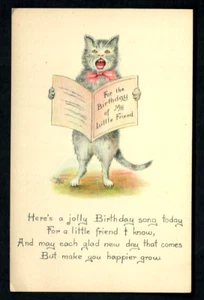 For the
Birthday
of My
Little Friend
Here's a jolly Birthday song today
For a little friend I know,
And may each glad new day that comes
But make you happier grow.